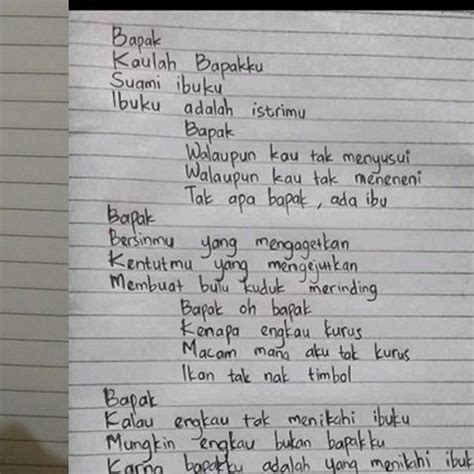 Bapak
Kaulah Bapakku
Suami ibuku
Ibuku adalah istrimu
Bapak
Walaupun kau tak menyusui
Walaupun kau tak meneneni
Tak apa bapak, ada ibu
Bapak
Bersinmu yang mengagetkan
Kentutmu yang mengejutkan
Membuat bulu kuduk merinding
Bapak oh bapak
Kenapa engkau kurus
Macam mana aku tak kurus
Ikan tak nak timbol
Bapak
Kalau engkau tak menikahi ibuku
Mungkin engkau bukan bapakku
Karna bapakku adalah yang menikahi ibuk